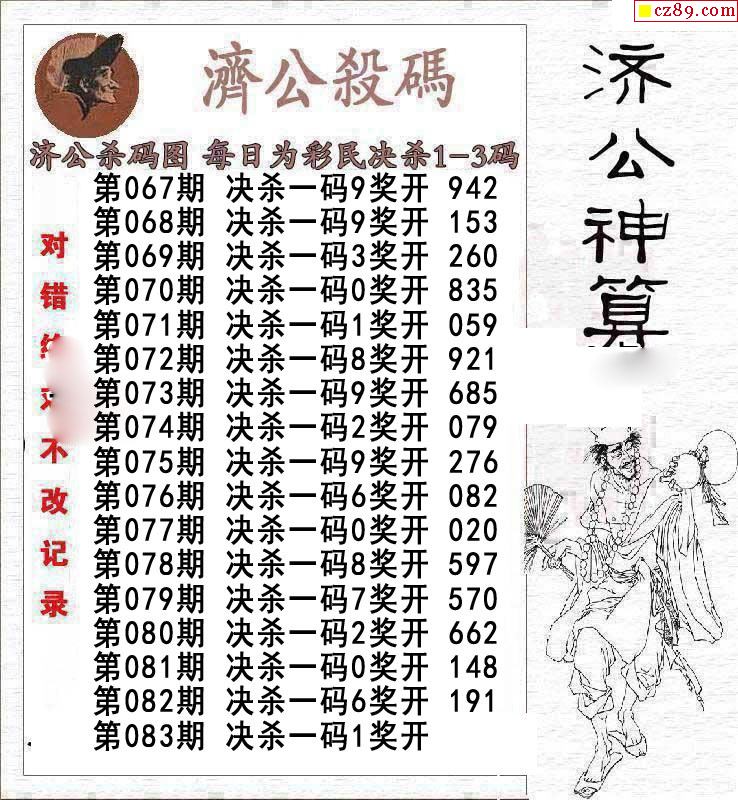 cz89.com
濟公殺碼
济公神算
济公杀码图 每日为彩民决杀1-3码
对错绝对不改记录
第067期 决杀一码9奖开 942
第068期 决杀一码9奖开 153
第069期 决杀一码3奖开 260
第070期 决杀一码0奖开 835
第071期 决杀一码1奖开 059
第072期 决杀一码8奖开 921
第073期 决杀一码9奖开 685
第074期 决杀一码2奖开 079
第075期 决杀一码9奖开 276
第076期 决杀一码6奖开 082
第077期 决杀一码0奖开 020
第078期 决杀一码8奖开 597
第079期 决杀一码7奖开 570
第080期 决杀一码2奖开 662
第081期 决杀一码0奖开 148
第082期 决杀一码6奖开 191
第083期 决杀一码1奖开